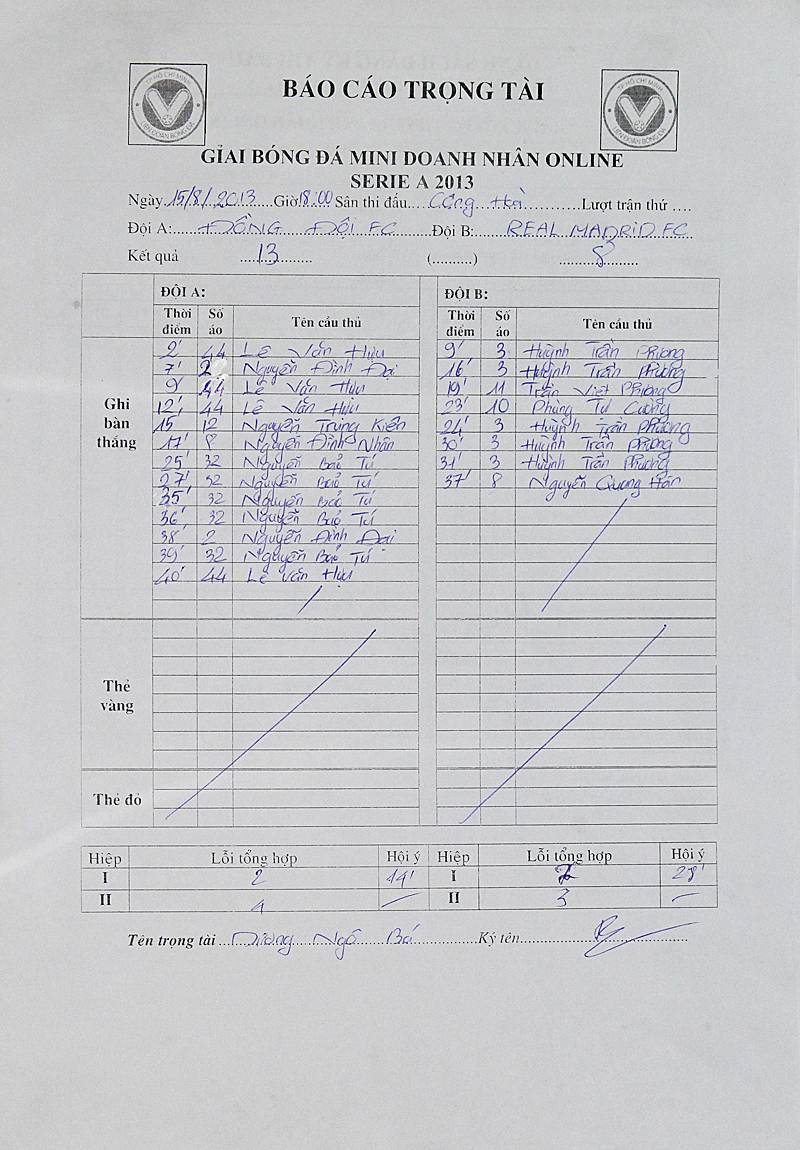 TP HỒ CHÍ MINH
LIÊN ĐOÀN BÓNG ĐÁ
BÁO CÁO TRỌNG TÀI
TP HỒ CHÍ MINH
LIÊN ĐOÀN BÓNG ĐÁ
GIẢI BÓNG ĐÁ MINI DOANH NHÂN ONLINE
SERIE A 2013
Ngày 15/8/2013 Giờ 18:00 Sân thi đấu.... Cộng Hà ............Lượt trận thứ ....
Đội A:..... ĐỒNG ĐỘI FC ...... Đội B: REAL MADRID FC
Kết quả 13 (..........) 8
ĐỘI A: ĐỘI B:
Thời điểm Số áo Tên cầu thủ Thời điểm Số áo Tên cầu thủ
Ghi bàn thắng
2' 44 Lê Văn Hựu 9' 3 Huỳnh Trần Phương
7' 2 Nguyễn Đình Đại 16' 3 Huỳnh Trần Phương
9' 44 Lê Văn Hựu 19' 11 Trần Việt Phương
12' 44 Lê Văn Hựu 23' 10 Phùng Tự Cường
15 12 Nguyễn Trung Kiên 24' 3 Huỳnh Trần Phương
17' 8 Nguyễn Đình Nhân 30' 3 Huỳnh Trần Phương
25' 32 Nguyễn Bảo Tú 31' 3 Huỳnh Trần Phương
27' 32 Nguyễn Bảo Tú 37' 8 Nguyễn Quang Hân
35' 32 Nguyễn Bảo Tú
36' 32 Nguyễn Bảo Tú
38' 2 Nguyễn Đình Đại
39' 32 Nguyễn Bảo Tú
40' 44 Lê Văn Hựu
Thẻ vàng
Thẻ đỏ
Hiệp Lỗi tổng hợp Hội ý Hiệp Lỗi tổng hợp Hội ý
I 2 14' I 28'
II 4 – II 3 –
Tên trọng tài ... Ngô Bá ........ Ký tên